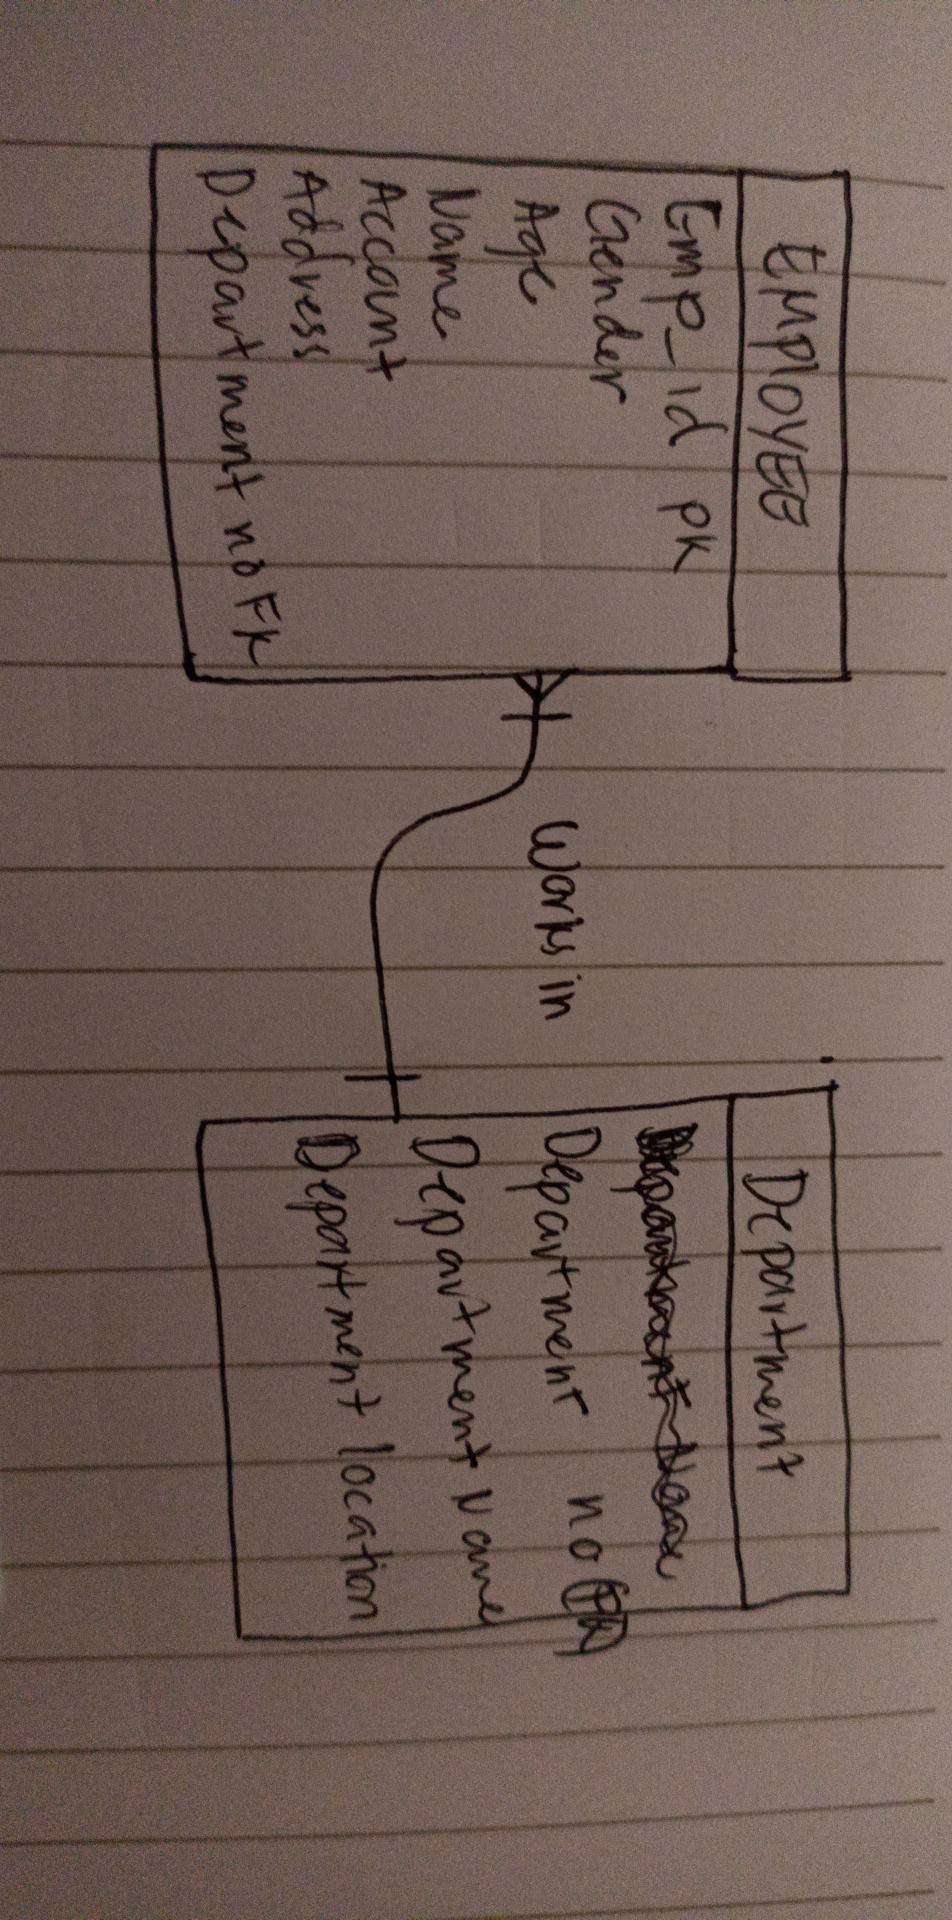 EMPLOYEE
Emp_id PK
Gender
Age
Name
Account
Address
Department no FK
Works in
Department
Department Name
Department no (PK)
Department Name
Department location